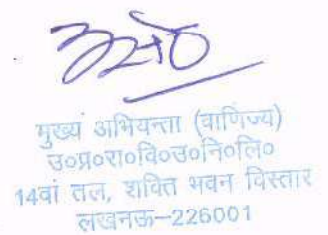 मुख्य अभियन्ता (वाणिज्य)
उ०प्र०रा०वि०उ०नि०लि०
14वां तल, शक्ति भवन विस्तार
लखनऊ–226001